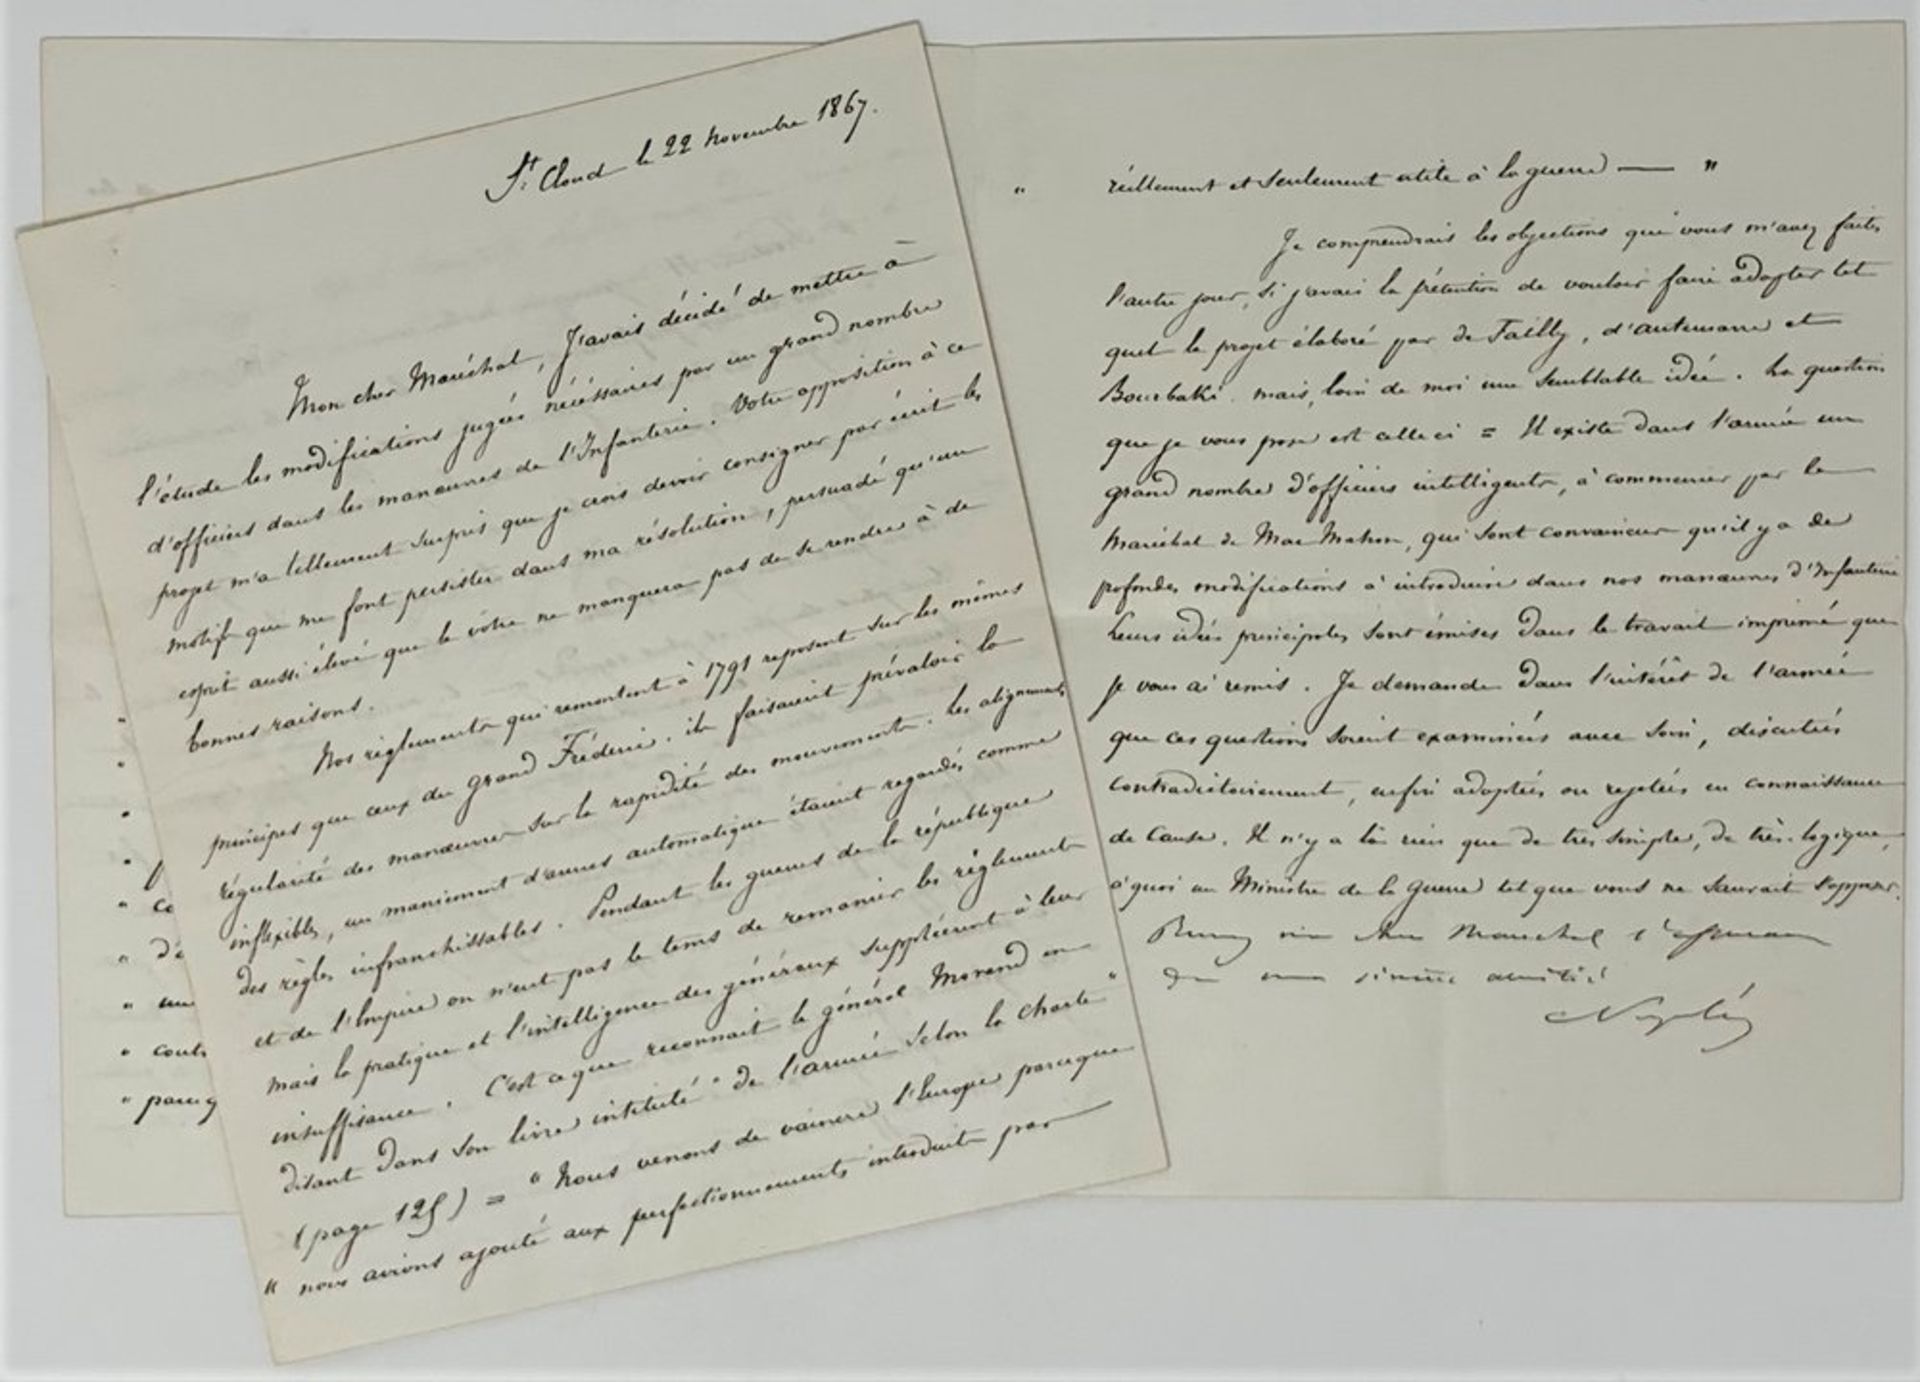 St Cloud le 22 novembre 1867.
Mon cher Maréchal, J'avais décidé de mettre à
l'étude les modifications jugées nécéssaires par un grand nombre
d'officiers dans les manœuvres de l'Infanterie. Votre opposition à ce
projet m'a tellement surpris que je crois devoir consigner par écrit les
motifs qui me font persister dans ma résolution, persuadé qu'un
esprit aussi élevé que le votre ne manquera pas de se rendre à de
bonnes raisons.
Nos règlements qui remontent à 1791 reposent sur les mêmes
principes que ceux du grand Fréderic. ils faisaient prévaloir la
régularité des manœuvres sur la rapidité des mouvements. les alignements
inflexibles, un maniement d'armes automatique étaient regardés comme
des règles infranchissables. Pendant les guerres de la république
et de l'Empire on n'eut pas le tems de remanier les règlements
mais la pratique et l'intelligence des généraux suppléèrent à leur
insuffisance. C'est ce que reconnait le général Morand en
disant dans son livre intitulé "de l'armée selon la charte"
(page 125) = " Nous venons de vaincre l'Europe parceque
" nous avions ajouté aux perfectionnements introduits par
" co
" dé
" une
" cont
" parc q
" réellement et seulement utile à la guerre — "
Je comprendrais les objections que vous m'avez faites
l'autre jour, si j'avais la prétention de vouloir faire adopter tel
quel le projet élaboré par de Failly, d'autemarre et
Bourbaki. mais, loin de moi une semblable idée. La question
que je vous pose est celle ci = Il existe dans l'armée un
grand nombre d'officiers intelligents, à commencer par le
Maréchal de Mac Mahon, qui sont convaincus qu'il y a de
profondes modifications à introduire dans nos manœuvres d'Infanterie
Leurs idées principales sont émises dans le travail imprimé que
je vous ai remis. Je demande dans l'intérêt de l'armée
que ces questions soient examinées avec soin, discutées
contradictoirement, enfin adoptées ou rejetées en connaissance
de cause. Il n'y a là rien que de très simple, de très-logique,
à quoi un Ministre de la Guerre tel que vous ne saurait s'opposer.
Recevez mon cher Maréchal l'assurance
de ma sincère amitié
Napoléon